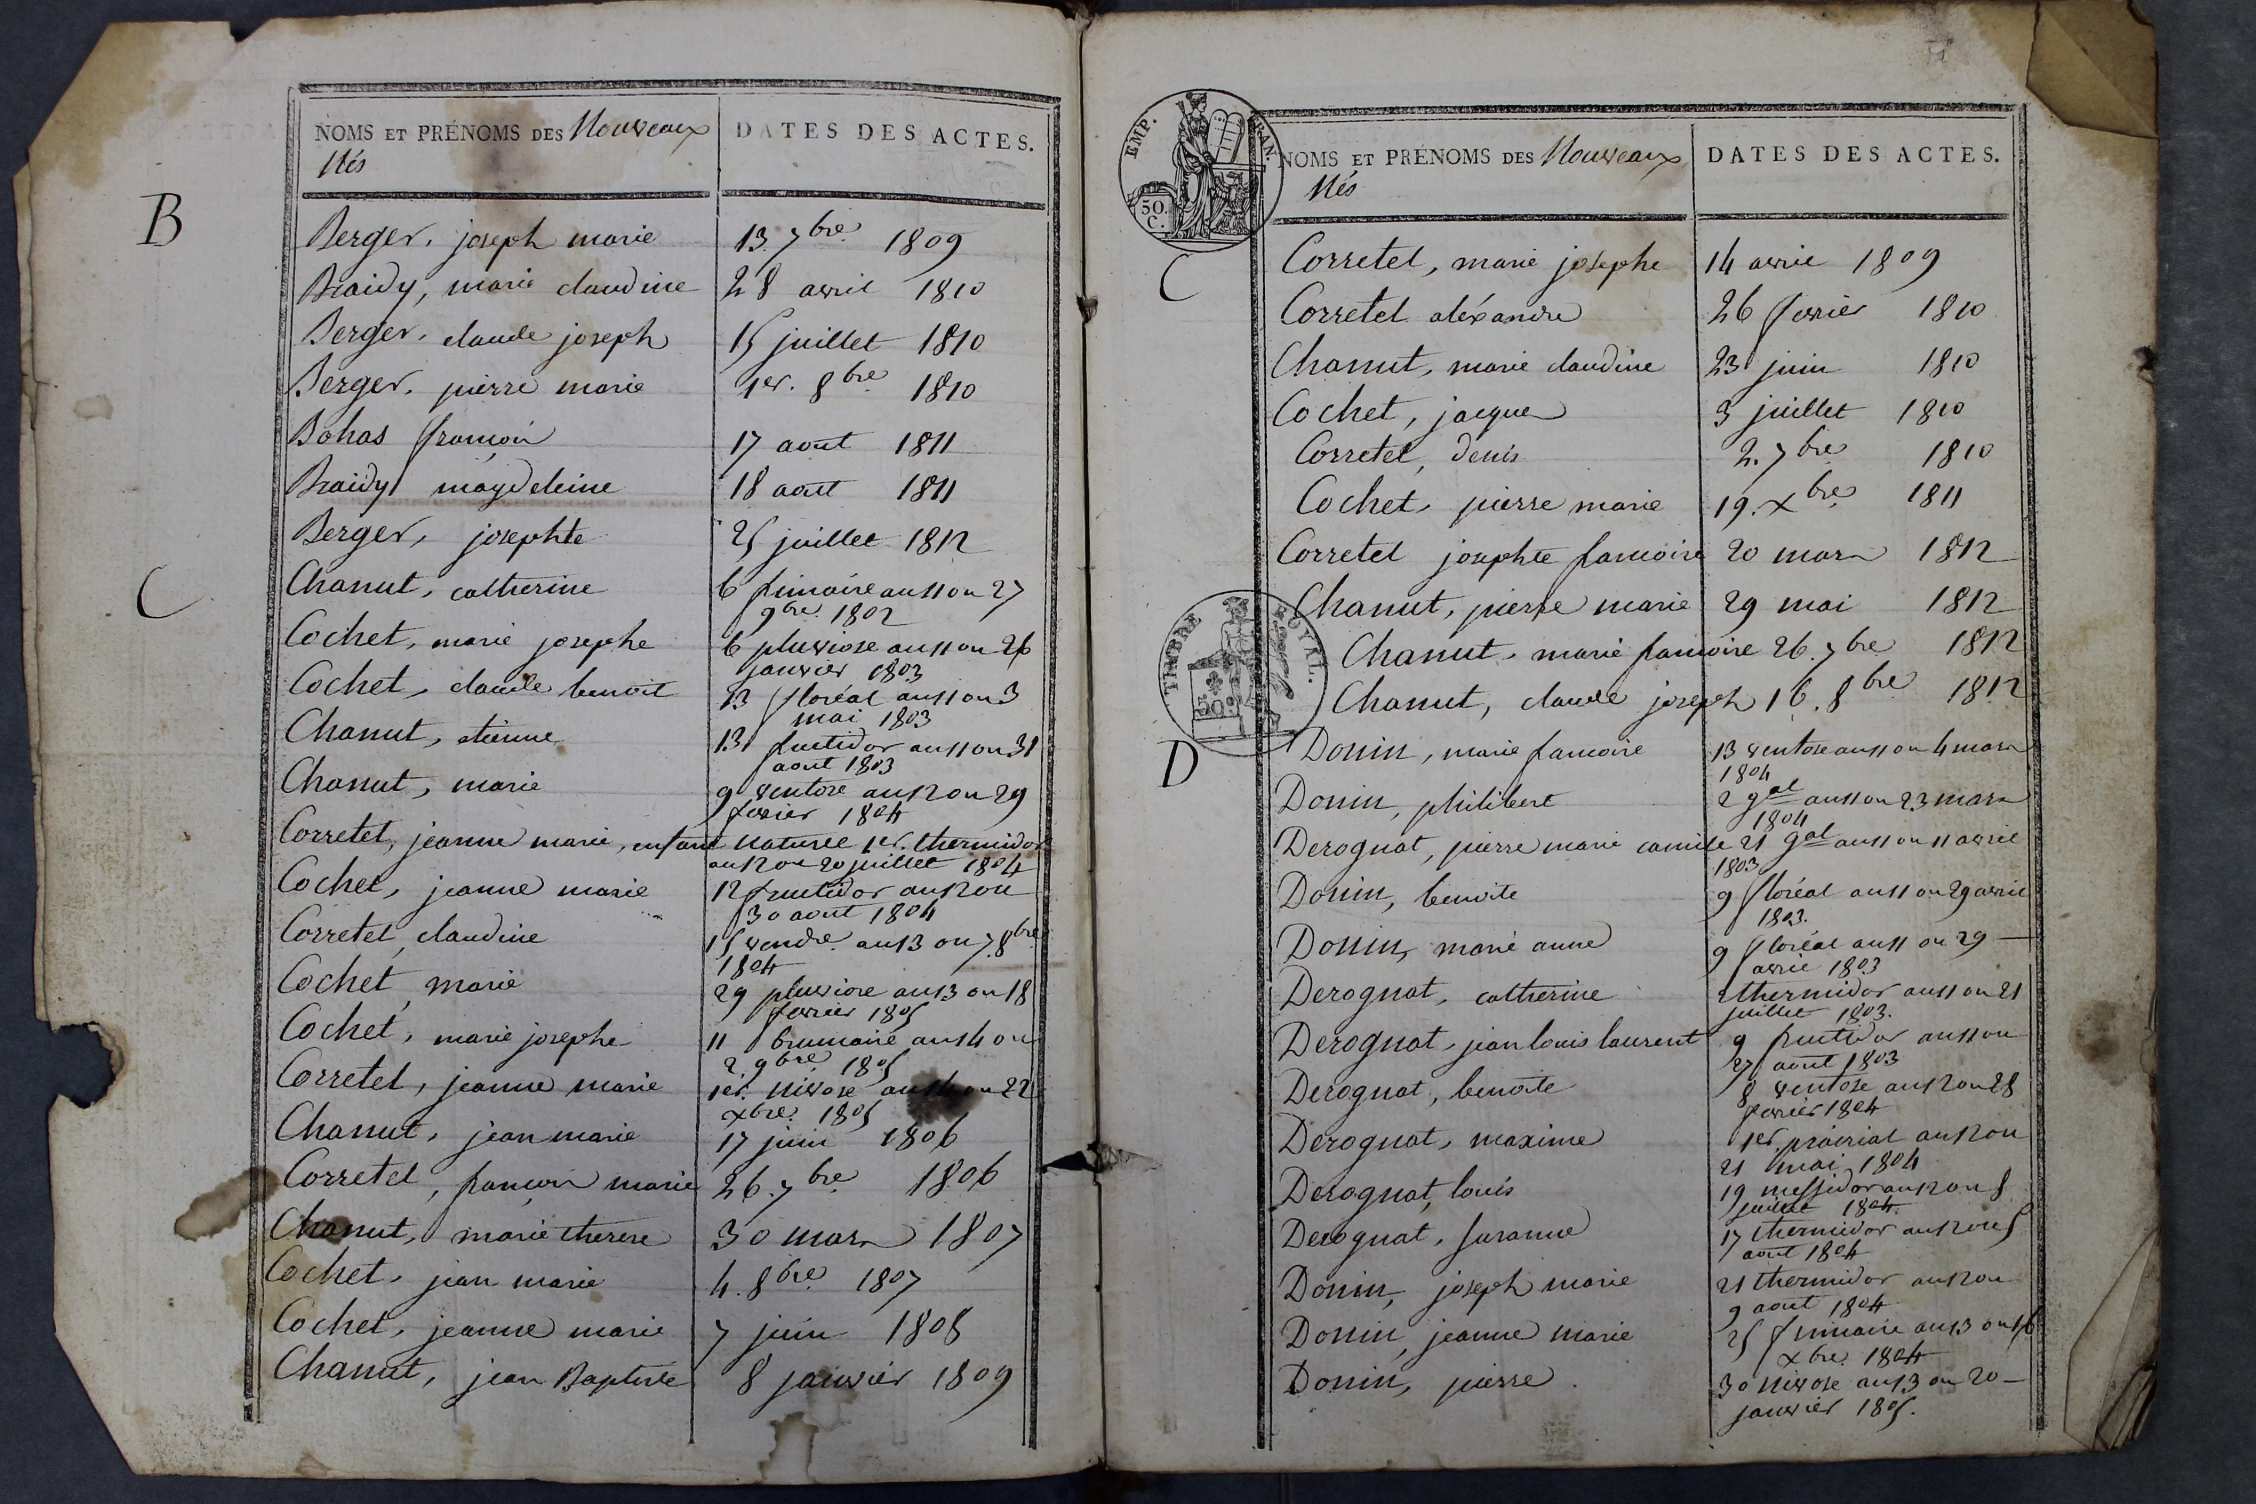 NOMS ET PRÉNOMS DES Nouveaux Nés
DATES DES ACTES.
B
Berger, joseph marie 13. 7bre 1809
Braidy, marie claudine 28 avril 1810
Berger, claude joseph 15 juillet 1810
Berger, pierre marie 1er. 8bre 1810
Bohas françois 17 aout 1811
Braidy magdeleine 18 aout 1811
Berger, josephte 25 juillet 1812
C
Chanut, catherine 6 frimaire an 11 ou 27
9bre 1802
Cochet, marie josephe 6 pluviose an 11 ou 26
janvier 1803
Cochet, claude benoit 13 floréal an 11 ou 3
mai 1803
Chanut, etienne 13 fructidor an 11 ou 31
aout 1803
Chanut, marie 9 ventose an 12 ou 29
fevrier 1804
Corretel, jeanne marie, enfant naturel 1er. thermidor
an 12 ou 20 juillet 1804
Cochet, jeanne marie 12 fructidor an 12 ou
30 aout 1804
Corretel, claudine 15 vendre. an 13 ou 7. 8bre
1804
Cochet, marie 29 pluviose an 13 ou 18
fevrier 1805
Cochet, marie josephe 11 brumaire an 14 ou
2. 9bre 1805
Corretel, jeanne marie 1er. nivose an 14 ou 22
xbre. 1805
Chanut, jean marie 17 juin 1806
Corretel, françois marie 26. 7bre 1806
Chanut, marie therese 30 mars 1807
Cochet, jean marie 4. 8bre 1807
Cochet, jeanne marie 7 juin 1808
Chanut, jean Baptiste 8 janvier 1809
EMP. FRAN.
50.
C.
NOMS ET PRÉNOMS DES Nouveaux Nés
DATES DES ACTES.
C
Corretel, marie josephe 14 avril 1809
Corretel aléxandre 26 fevrier 1810
Chanut, marie claudine 23 juin 1810
Cochet, jacques 3 juillet 1810
Corretel, denis 2. 7bre 1810
Cochet, pierre marie 19. xbre 1811
Corretel josephte francoise 20 mars 1812
Chanut, pierre marie 29 mai 1812
Chanut, marie francoise 26. 7bre 1812
Chanut, claude joseph 16. 8bre 1812
TIMBRE ROYAL.
50c
D
Donin, marie francoise 13 ventose an 11 ou 4 mars
1804
Donin, philibert 2 gal an 11 ou 23 mars
1804
Derognat, pierre marie camile 21 gal an 11 ou 11 avril
1803
Donin, benoite 9 floréal an 11 ou 29 avril
1803.
Donin, marie anne 9 floréal an 11 ou 29
avril 1803
Derognat, catherine 2 thermidor an 11 ou 21
juillet 1803.
Derognat, jean louis laurent 9 fructidor an 11 ou
27 aout 1803
Derognat, benoite 8 ventose an 12 ou 28
fevrier 1804
Derognat, maxime 1er. prairial an 12 ou
21 mai 1804
Derognat, louis 19 messidor an 12 ou 8
juillet 1804.
Derognat, suzanne 17 thermidor an 12 ou 5
aout 1804
Donin, joseph marie 21 thermidor an 12 ou
9 aout 1804
Donin, jeanne marie 25 frimaire an 13 ou 16
xbre. 1804
Donin, pierre 30 nivose an 13 ou 20
janvier 1805.